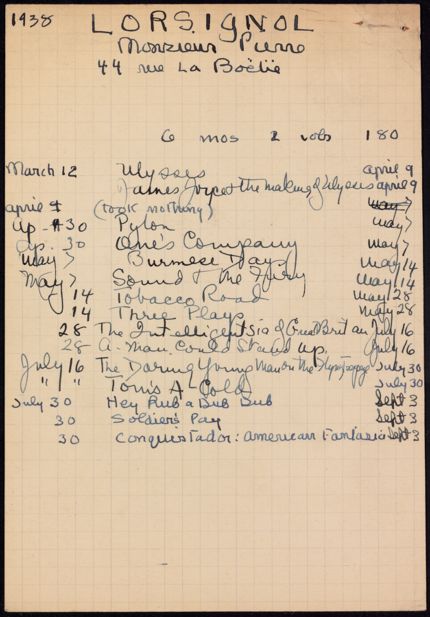 1938 LORSIGNOL
Monsieur Pierre
44 rue La Boëtie
6 mos 2 vols 180
March 12 Ulysses april 9
James Joyce & the making of Ulysses april 9
april 9 (took nothing) may 7
ap. 30 Pylon may 7
ap. 30 One's Company may 7
may 7 Burmese Days may 14
May 7 Sound & the Fury may 14
14 Tobacco Road may 28
14 Three Plays may 28
28 The Intelligentsia of Great Britain July 16
28 A Man Could Stand up July 16
July 16 The Daring Young Man on the Trapeze July 30
" " Tom's A-Cold July 30
July 30 Hey Rub a Dub Dub Sept 3
30 Soldiers Pay Sept 3
30 Conquistador: American Fantasia Sept 3